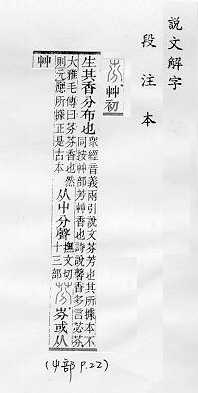 說文解字
段注本
艸初
生其香分布也
眾經音義兩引說文芬芳也其所據本不
同按艸部芳艸香也詩說馨香多言苾芬
大雅毛傳曰芬芬香也然
則元應所據正是古本
从屮分聲
撫文切
十三部
芬或从
艸
(屮部 P.22)